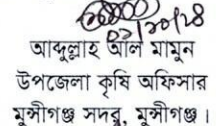 ০২/১০/২৪
আব্দুল্লাহ আল মামুন
উপজেলা কৃষি অফিসার
মুন্সীগঞ্জ সদর, মুন্সীগঞ্জ।